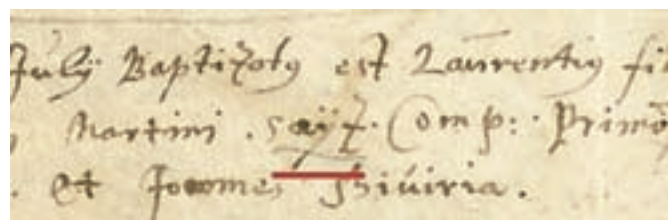 July Baptizatus est Laurentius fi
Martini . sayz . Comp: . Primo
. et Joannes